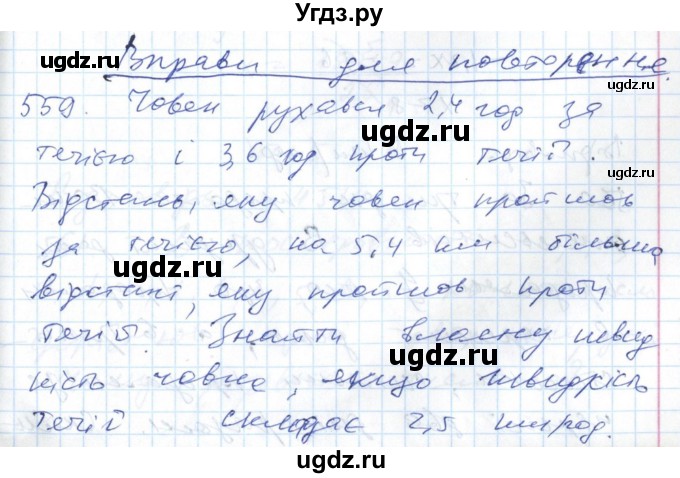 Угдз.ру
Вправи для повторення.
559. Човен рухався 2,4 год за
течією і 3,6 год проти течії.
Відстань, яку човен пройшов
за течією, на 5,4 км більша
відстані, яку пройшов проти
течії. Знайти власну швид
кість човна, якщо швидкість
течії складає 2,5 км/год.
ugdz.ru
ugdz.ru
ugdz.ru
ugdz.ru
ugdz.ru
ugdz.ru
ugdz.ru